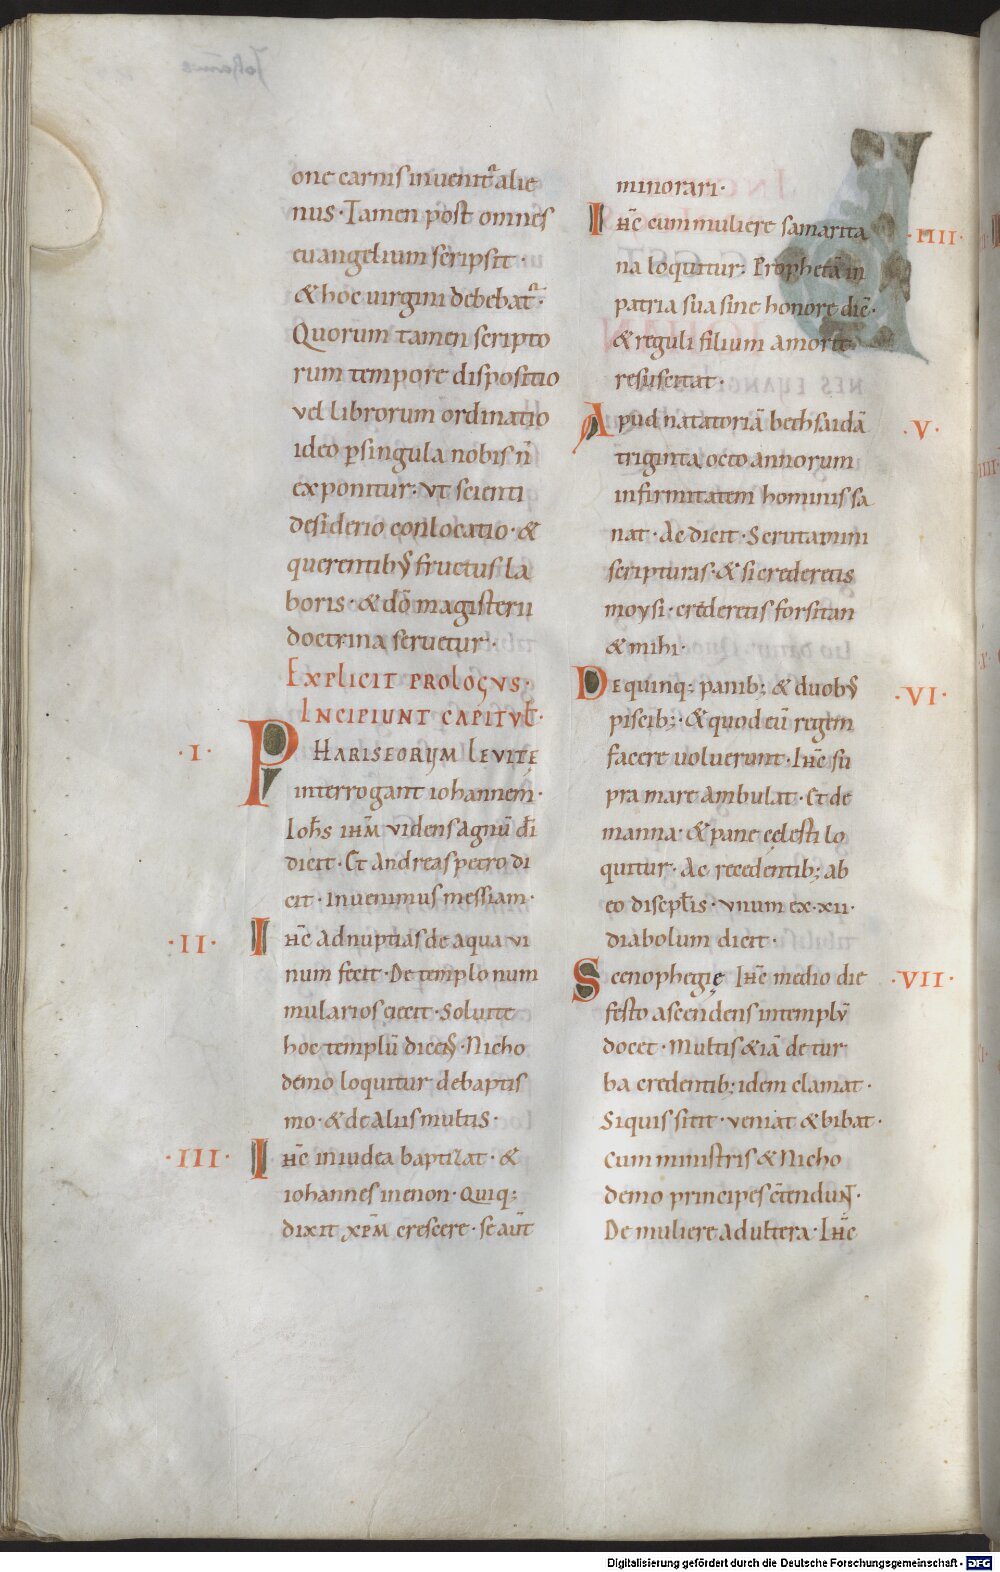 one carnis inuenit᷑ alie
nus · Tamen post omnes
euangelium scripsit ·
& hoc uirgini debebat᷑ ·
Quorum tamen scripto
rum tempore dispositio
vel librorum ordinatio
ideo ꝑ singula nobis n̄
exponitur · vt scienti
desiderio conlocatio · &
querentibꝰ fructus la
boris · & dō magisterii
doctrina seruetur ·
EXPLICIT PROLOGVS ·
INCIPIUNT CAPITVL̄ ·
· I · PHARISEORUM LEVITE
interrogant iohannem ·
Ioh̄s ihm̄ videns agnū dī
dicit · Et andreas petro di
cit · Inuenimus messiam ·
· II · Ihc̄ ad nuptias de aqua vi
num fecit · De templo num
mularios eiecit · Soluite
hoc templū dicēs · Nicho
demo loquitur de baptis
mo · & de aliis multis ·
· III · Ihc̄ in iudea baptizat · &
iohannes in enon · Quiq;
dixit xpm̄ crescere · se aūt
minorari ·
· IIII · Ihc̄ cum muliere samarita
na loquitur : Prophetā in
patria sua sine honore diē ·
& reguli filium a morte
resuscitat ·
· V · Apud natatoriā bethsaidā
triginta octo annorum
infirmitatem hominis sa
nat · Ac dicit · Scrutamini
scripturas · & si crederetis
moysi · crederetis forsitan
& mihi ·
· VI · De quinq; panib; & duobꝰ
piscib; · & quod eū regem
facere uoluerunt · Ihc̄ su
pra mare ambulat · Et de
manna · & pane cęlesti lo
quitur · Ac recedentib; ab
eo discipl̄is · vnum ex · xii ·
diabolum dicit ·
· VII · Scenophegię Ihc̄ medio die
festo ascendens in templū
docet · Multis & iā de tur
ba credentib; idem clamat ·
Siquis sitit · veniat & bibat ·
Cum ministris & Nicho
demo principes c̄tendunt ·
De muliere adultera · Ihc̄
Digitalisierung gefördert durch die Deutsche Forschungsgemeinschaft - DFG